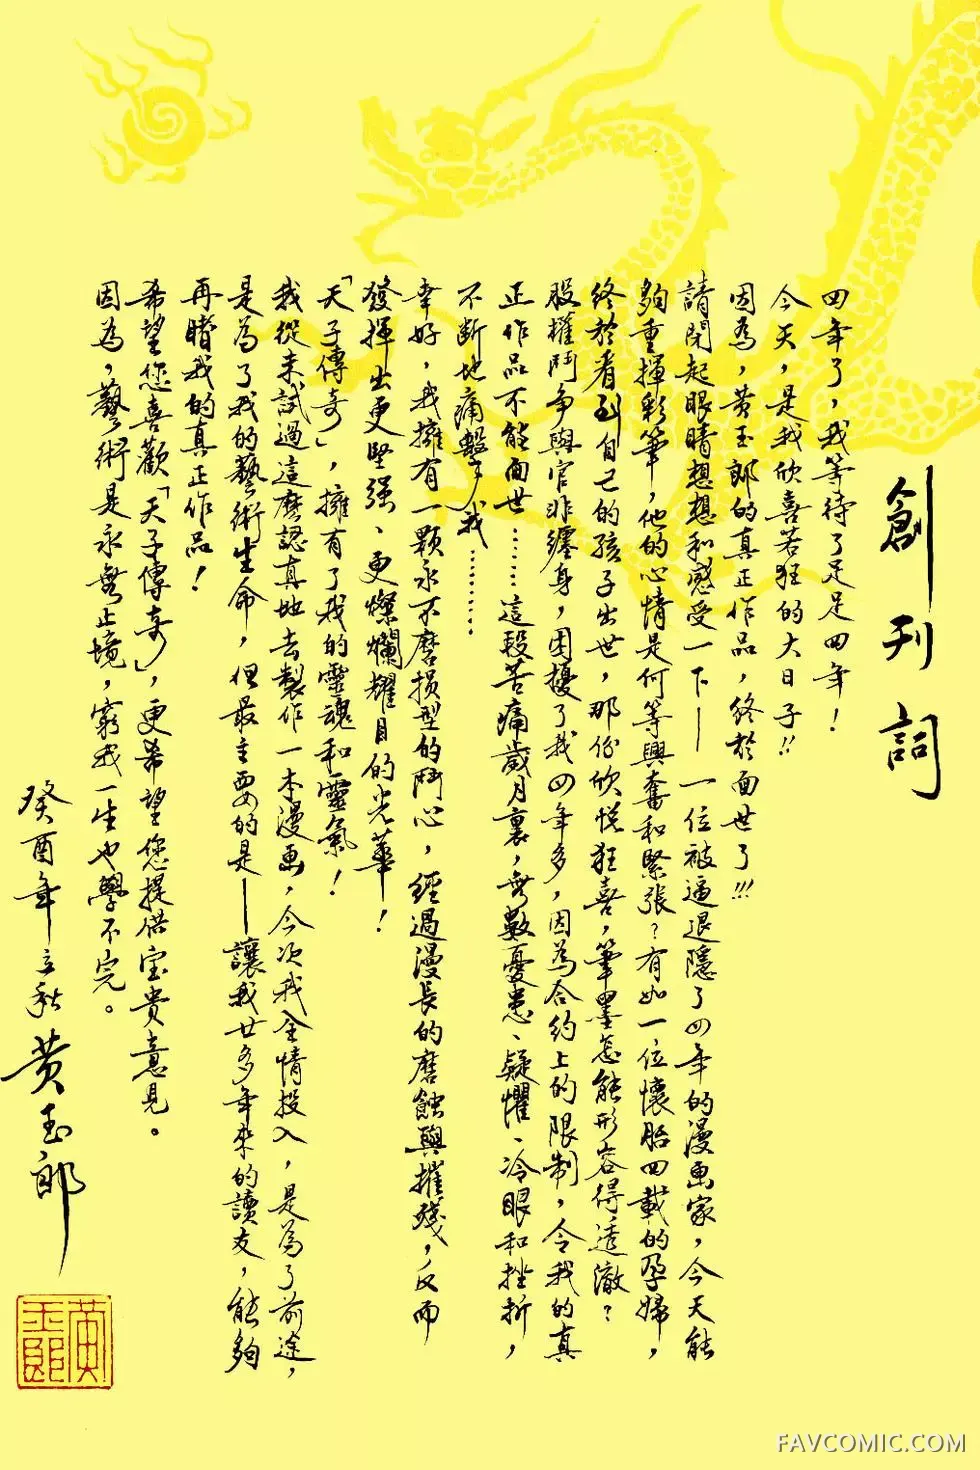 創刊詞
四年了，我等待了足足四年！
今天，是我欣喜若狂的大日子!!
因為，黃玉郎的真正作品，終於面世了!!!
請閉起眼睛想想和感受一下——一位被逼退隱了四年的漫画家，今天能
夠重揮彩筆，他的心情是何等興奮和緊張？有如一位懷胎四載的孕婦，
終於看到自己的孩子出世，那份欣悅狂喜，筆墨怎能形容得透澈？
股權鬥爭與官非纏身，困擾了我四年多，因為合約上的限制，令我的真
正作品不能面世……這段苦痛歲月裏，無數憂患、疑懼、冷眼和挫折，
不斷地痛擊我………
幸好，我擁有一顆永不磨損型的鬥心，經過漫長的磨蝕與摧殘，反而
發揮出更堅强、更燦爛耀目的光華！
「天子傳奇」，擁有了我的靈魂和靈氣！
我從未試過這麼認真地去製作一本漫画，今次我全情投入，是為了前途，
是為了我的藝術生命，但最主要的是——讓我廿多年來的讀友，能夠
再睹我的真正作品！
希望您喜歡「天子傳奇」，更希望您提供宝貴意見。
因為，藝術是永無止境，窮我一生也學不完。
癸酉年立秋 黃玉郎
黃玉郎
FAVCOMIC.COM